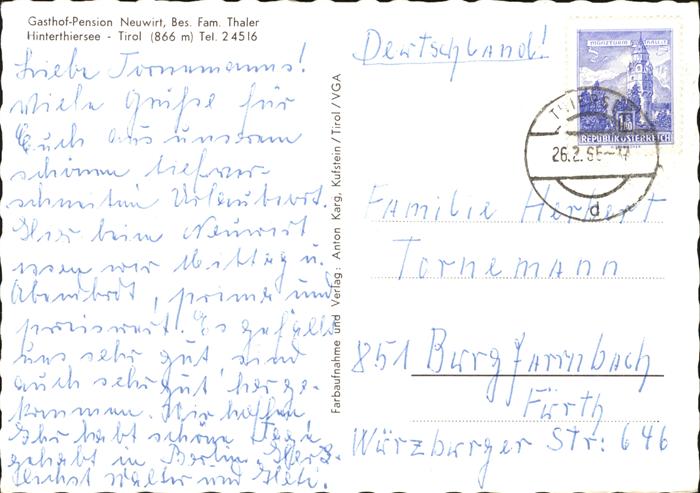 Gasthof-Pension Neuwirt, Bes. Fam. Thaler
Hinterthiersee - Tirol (866 m) Tel. 24516
Liebe Tornemanns!
Viele Grüße für
Euch aus unserem
schönen tiefver-
schneiten Urlaubsort.
Hier beim Neuwirt
essen wir Mittag u.
Abendbrot, prima und
preiswert. Es gefällt
uns sehr gut sind
auch sehr gut herge-
kommen. Wir hoffen
Ihr habt schöne Tage
gehabt in Berlin. Herz-
lichst Walter und
Farbaufnahme und Verlag: Anton Karg, Kufstein/Tirol/VGA
Deutschland!
MÜNZTURM HALL I.T.
REPUBLIK ÖSTERREICH
THIERS
26.2.66-17
d
Familie Herbert
Tornemann
851 Burgfarrnbach
Fürth
Würzburger Str: 646